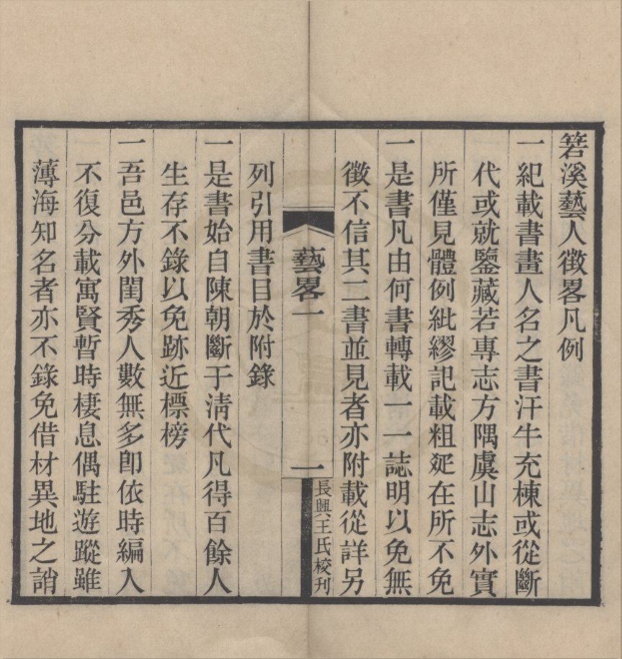 箬溪藝人徵畧凡例
一紀載書畫人名之書汗牛充棟或從斷
代或就鑒藏若專志方隅虞山志外實
所僅見體例紕繆記載粗疵在所不免
一是書凡由何書轉載一一誌明以免無
徵不信其二書並見者亦附載從詳另
藝畧一
一
長興王氏校刊
列引用書目於附錄
一是書始自陳朝斷于淸代凡得百餘人
生存不錄以免跡近標榜
一吾邑方外閨秀人數無多卽依時編入
不復分載寓賢暫時棲息偶駐遊蹤雖
薄海知名者亦不錄免借材異地之誚